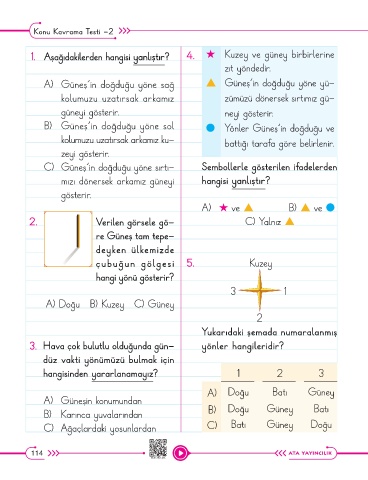 Konu Kavrama Testi -2
1. Aşağıdakilerden hangisi yanlıştır?
A) Güneş'in doğduğu yöne sağ
kolumuzu uzatırsak arkamız
güneyi gösterir.
B) Güneş'in doğduğu yöne sol
kolumuzu uzatırsak arkamız ku-
zeyi gösterir.
C) Güneş'in doğduğu yöne sırtı-
mızı dönersek arkamız güneyi
gösterir.
2. Verilen görsele gö-
re Güneş tam tepe-
deyken ülkemizde
çubuğun gölgesi
hangi yönü gösterir?
A) Doğu B) Kuzey C) Güney
3. Hava çok bulutlu olduğunda gün-
düz vakti yönümüzü bulmak için
hangisinden yararlanamayız?
A) Güneşin konumundan
B) Karınca yuvalarından
C) Ağaçlardaki yosunlardan
4. ★ Kuzey ve güney birbirlerine
zıt yöndedir.
▲ Güneş'in doğduğu yöne yü-
zümüzü dönersek sırtımız gü-
neyi gösterir.
● Yönler Güneş'in doğduğu ve
battığı tarafa göre belirlenir.
Sembollerle gösterilen ifadelerden
hangisi yanlıştır?
A) ★ ve ▲ B) ▲ ve ●
C) Yalnız ▲
5. Kuzey
3 1
2
Yukarıdaki şemada numaralanmış
yönler hangileridir?
1 2 3
A) Doğu Batı Güney
B) Doğu Güney Batı
C) Batı Güney Doğu
114
ATA YAYINCILIK